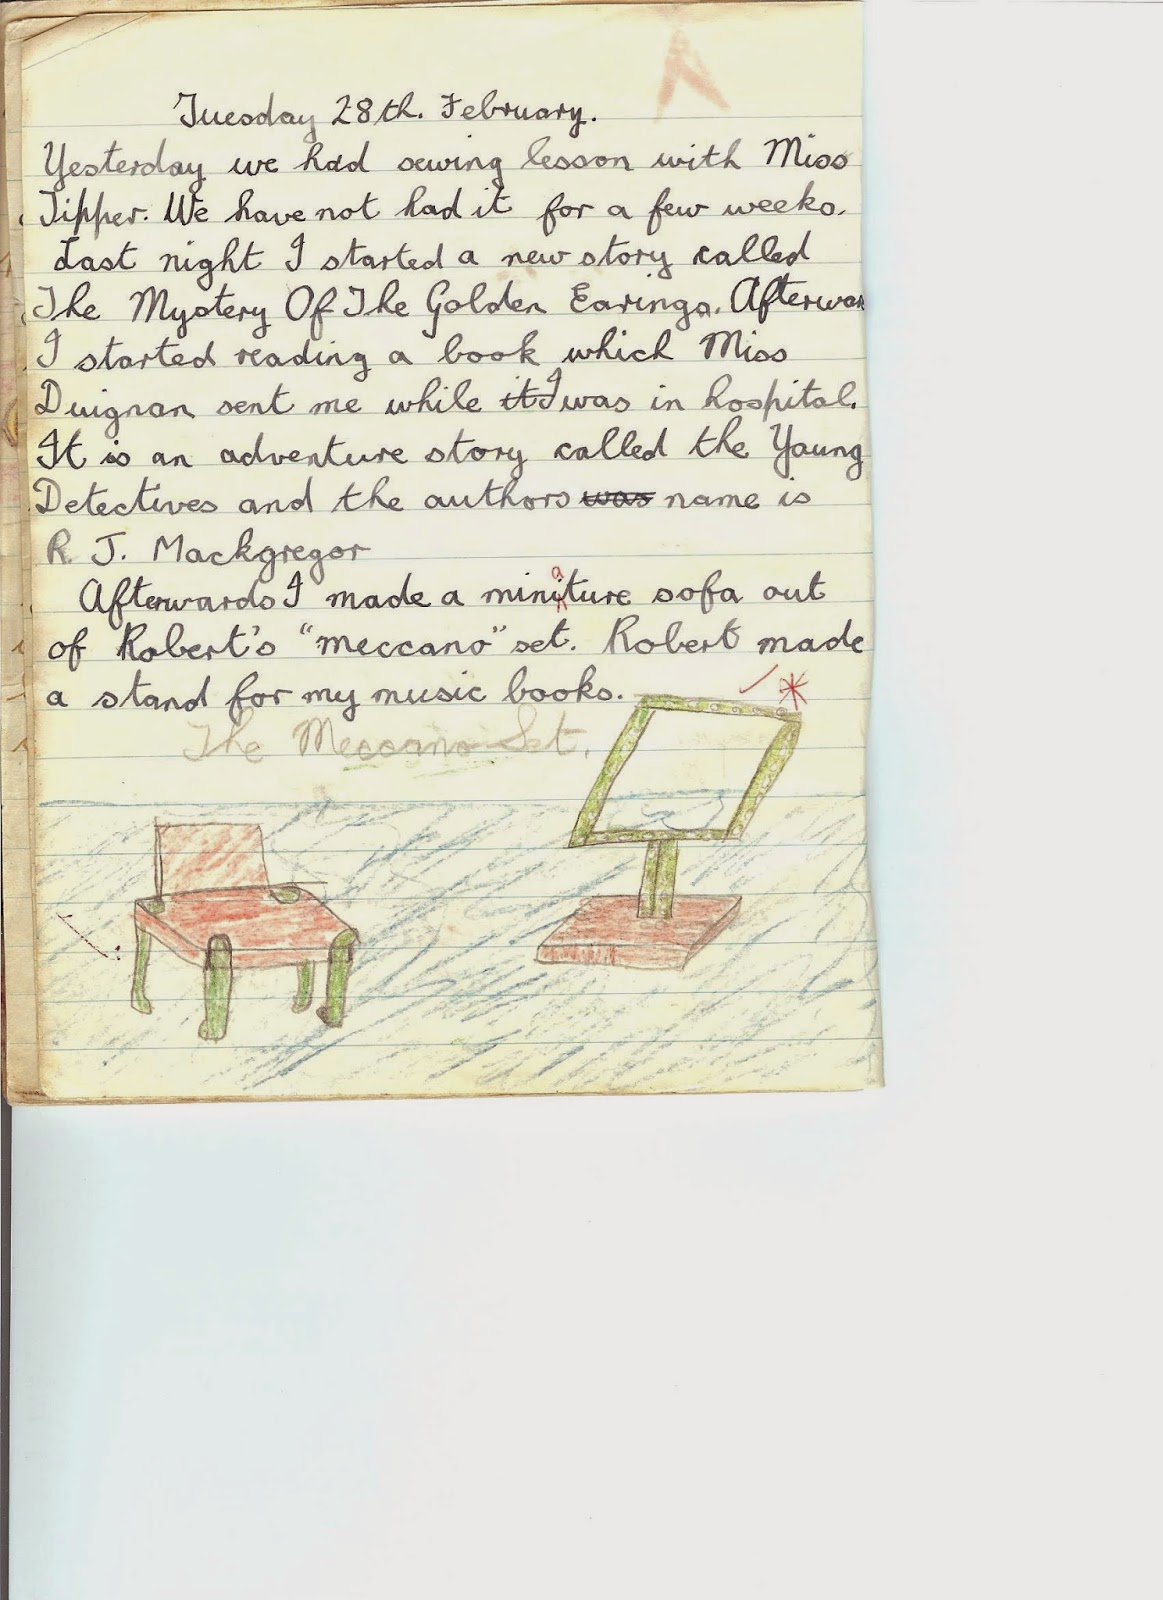 Tuesday 28th. February.
Yesterday we had sewing lesson with Miss
Tipper. We have not had it for a few weeks.
Last night I started a new story called
The Mystery Of The Golden Earings. Afterwar
I started reading a book which Miss
Duignan sent me while it I was in hospital.
It is an adventure story called the Young
Detectives and the authors was name is
R. J. Mackgregor
a
Afterwards I made a miniture sofa out
of Robert's "meccano" set. Robert made
a stand for my music books.
The Meccano Set.